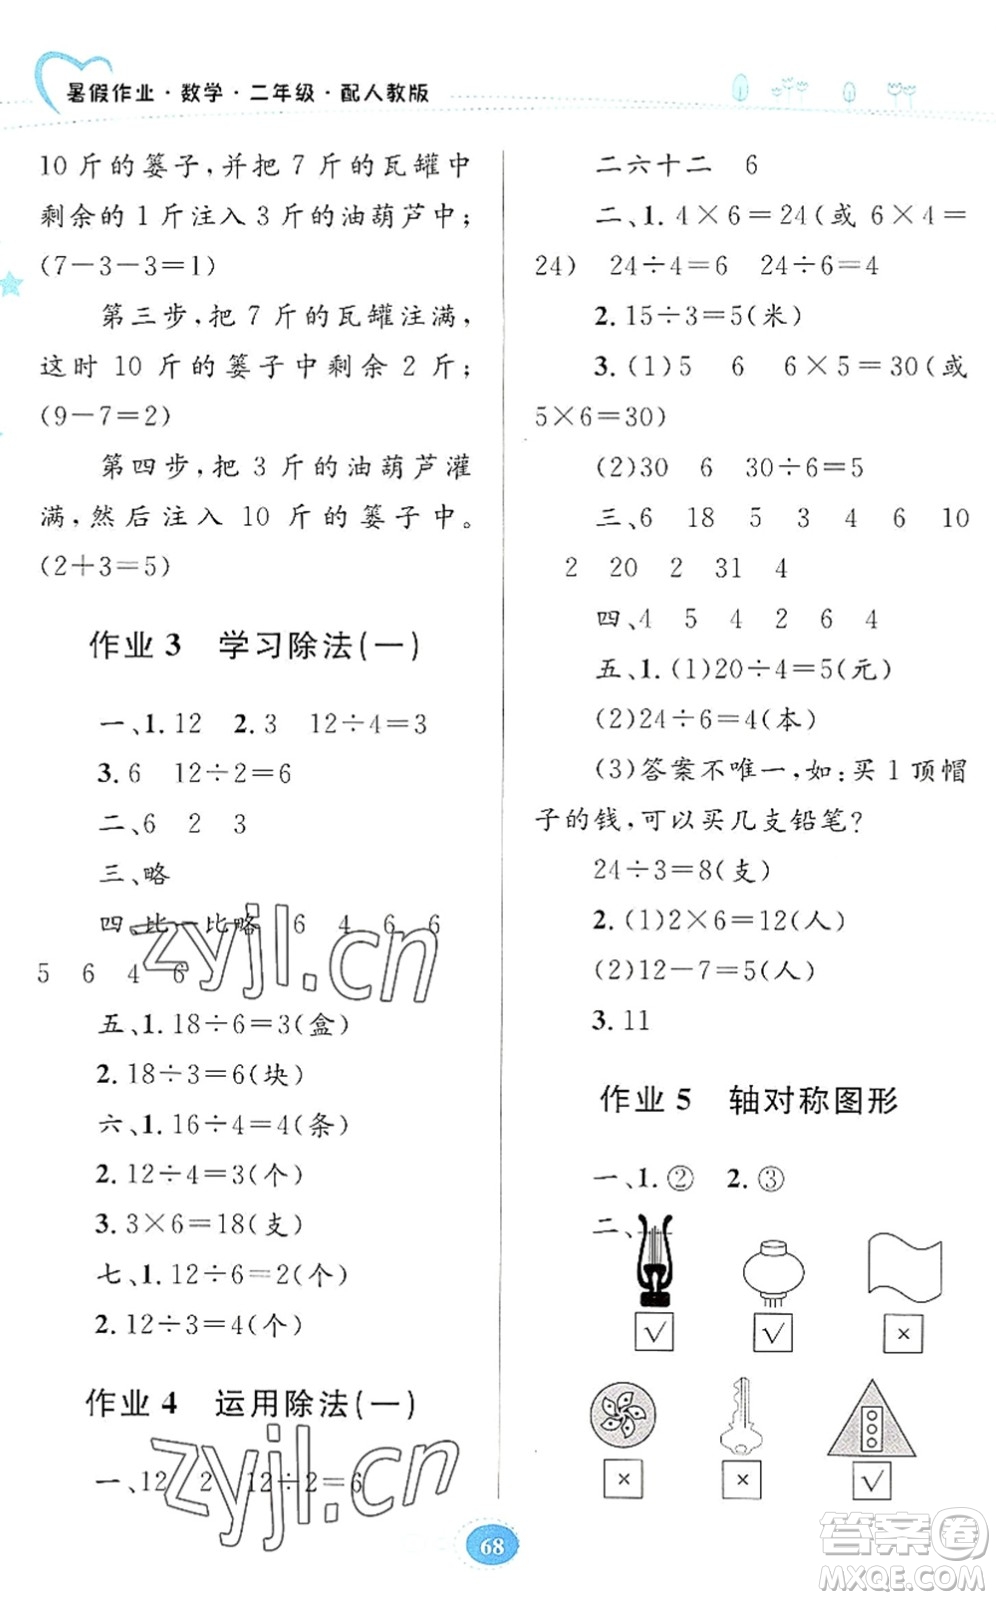 暑假作业·数学·二年级·配人教版
10 斤的篓子,并把 7 斤的瓦罐中
剩余的 1 斤注入 3 斤的油葫芦中;
(7－3－3＝1)
第三步,把 7 斤的瓦罐注满,
这时 10 斤的篓子中剩余 2 斤;
(9－7＝2)
第四步,把 3 斤的油葫芦灌
满,然后注入 10 斤的篓子中。
(2＋3＝5)
作业 3 学习除法(一)
一、1. 12 2. 3 12÷4＝3
3. 6 12÷2＝6
二、6 2 3
三、略
四 比一比略 6 4 6 6
5 6 4 6
五、1. 18÷6＝3(盒)
2. 18÷3＝6(块)
六、1. 16÷4＝4(条)
2. 12÷4＝3(个)
3. 3×6＝18(支)
七、1. 12÷6＝2(个)
2. 12÷3＝4(个)
作业 4 运用除法(一)
一、12 2 12÷2＝6
二六十二 6
二、1. 4×6＝24(或 6×4＝
24) 24÷4＝6 24÷6＝4
2. 15÷3＝5(米)
3. (1)5 6 6×5＝30(或
5×6＝30)
(2)30 6 30÷6＝5
三、6 18 5 3 4 6 10
2 20 2 31 4
四、4 5 4 2 6 4
五、1. (1)20÷4＝5(元)
(2)24÷6＝4(本)
(3)答案不唯一,如:买 1 顶帽
子的钱,可以买几支铅笔?
24÷3＝8(支)
2. (1)2×6＝12(人)
(2)12－7＝5(人)
3. 11
作业 5 轴对称图形
一、1. ② 2. ③
二、
√ √ ×
× × √
68
zyjl.cn
zyjl.cn
答案卷
MXQE.COM